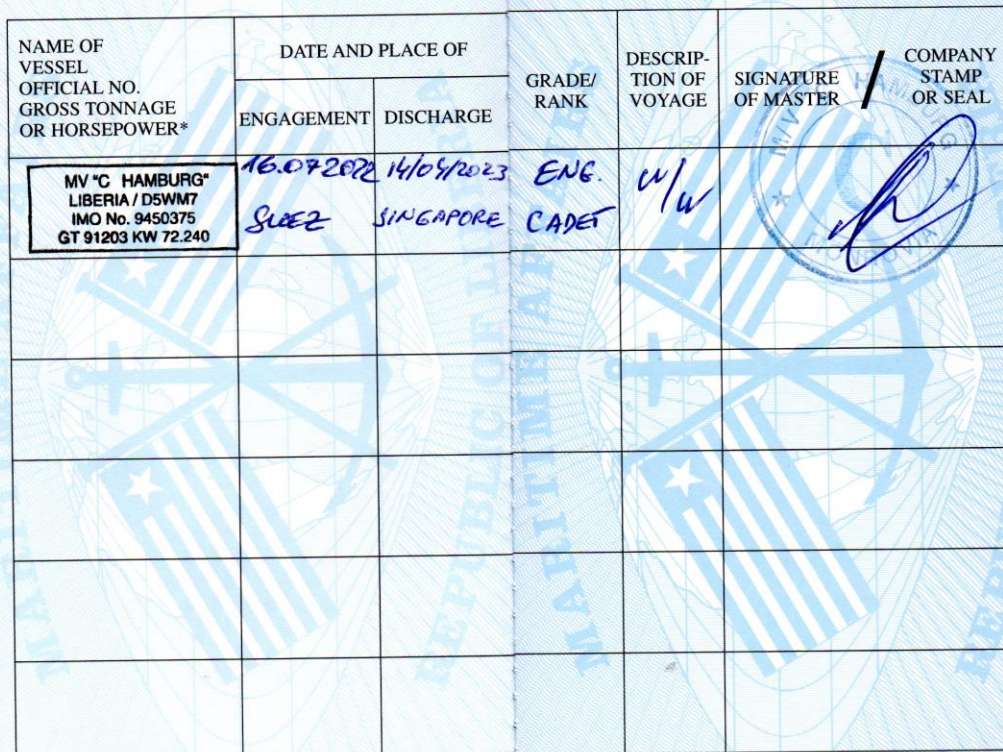 NAME OF
VESSEL
OFFICIAL NO.
GROSS TONNAGE
OR HORSEPOWER*
DATE AND PLACE OF
ENGAGEMENT
DISCHARGE
GRADE/
RANK
DESCRIP-
TION OF
VOYAGE
SIGNATURE
OF MASTER
/
COMPANY
STAMP
OR SEAL
MV "C HAMBURG"
LIBERIA / D5WM7
IMO No. 9450375
GT 91203 KW 72.240
16.07.2022
SUEZ
14/04/2023
SINGAPORE
ENG.
CADET
W/W
M/V C HAMBURG
MONROVIA
REPUBLIC OF
MARITIME AF